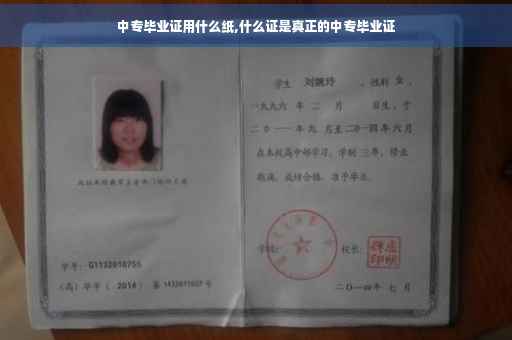 中专毕业证用什么纸,什么证是真正的中专毕业证
学生 刘婉玲 ，性别 女 ，
一九九六 年 二 月 日生，于
二〇一一 年 九 月至 二〇一四 年 六 月
在本校高中部学习，学制 三 年，修业
期满，成绩合格，准予毕业。
学校： 校长：
学号： G1132010755
（高）毕字（ 2014 ）第 1432011027 号
二〇一四年 七 月